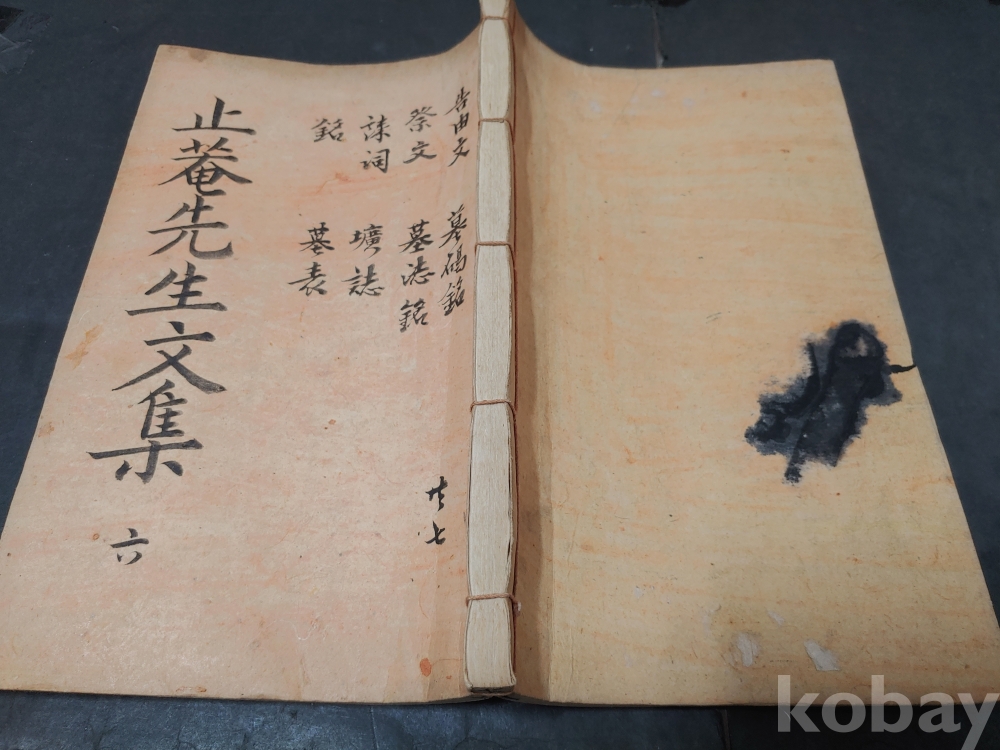 止菴先生文集 六
告由文
祭文
誄詞
銘
墓碣銘
墓誌銘
壙誌
墓表
共七
kobay